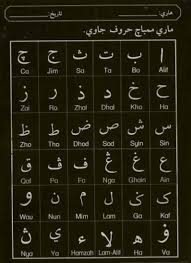 هاري: تاريخ:
ماري ممباچ حروف جاوي.
ا ب ت ث ج چ
Ca Jim Sa Ta Ba Alif
ح خ د ذ ر ز
Zai Ra Zhal Dal Kho Ha
س ش ص ض ط ظ
Zho Tho Dhod Sod Syin Sin
ع غ ڠ ف ڤ ق
Qaf Pa Fa Nga Ghain Ain
ک ݢ ل م ن و
Wau Nun Mim Lam Ga Kaf
ۏ ه لا ء ي ڽ
Nya Ya Hamzah Lam-Alif Ha Va